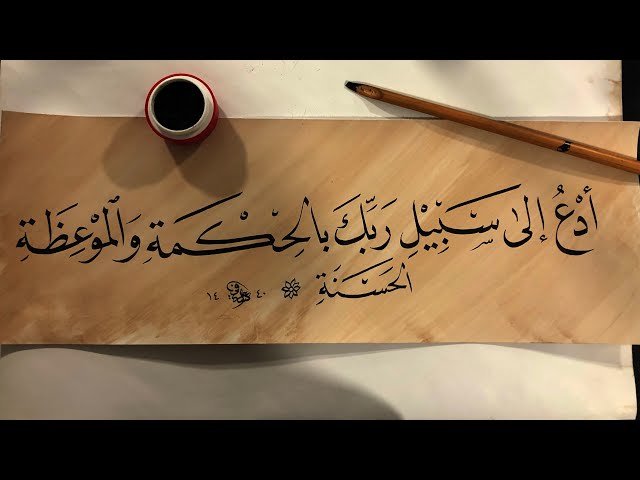 أُدْعُ إلىٰ سَبِيْلِ رَبِّكَ بِالْحِكْمَةِ وَالْمَوْعِظَةِ
الْحَسَنَةِ
١٤ ٤٠